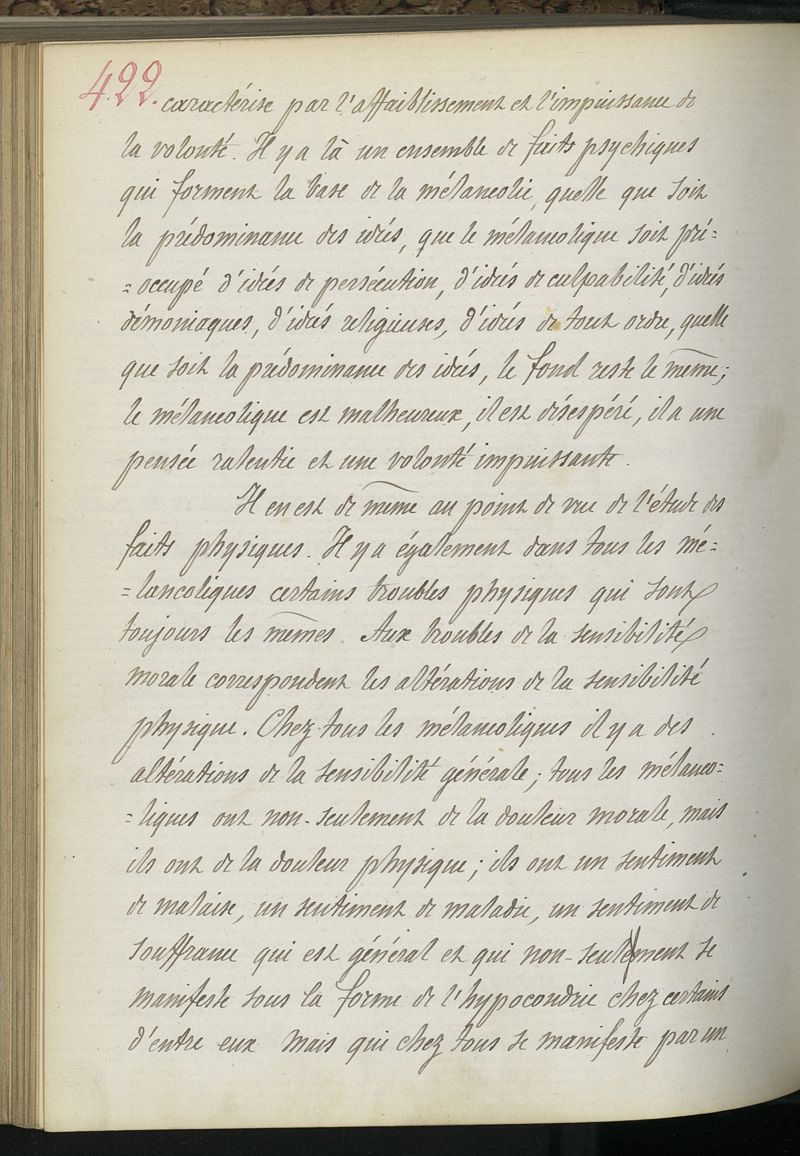 422.
caractérise par l'affaiblissement et l'impuissance de
la volonté. Il y a là un ensemble de faits psychiques
qui forment la base de la mélancolie, quelle que soit
la prédominance des idées, que le mélancolique soit pré=
=occupé d'idées de persécution, d'idées de culpabilité, d'idées
démoniaques, d'idées religieuses, d'idées de tout ordre, quelle
que soit la prédominance des idées, le fond reste le même;
le mélancolique est malheureux, il est désespéré, il a une
pensée ralentie et une volonté impuissante.
Il en est de même au point de vue de l'étude des
faits physiques. Il y a également dans tous les mé=
=lancoliques certains troubles physiques qui sont
toujours les mêmes. Aux troubles de la sensibilité
morale correspondent les altérations de la sensibilité
physique. Chez tous les mélancoliques il y a des
altérations de la sensibilité générale; tous les mélanco=
=liques ont non-seulement de la douleur morale, mais
ils ont de la douleur physique; ils ont un sentiment
de malaise, un sentiment de maladie, un sentiment de
souffrance qui est général et qui non-seulement se
manifeste sous la forme de l'hypocondrie chez certains
d'entre eux mais qui chez tous se manifeste par un